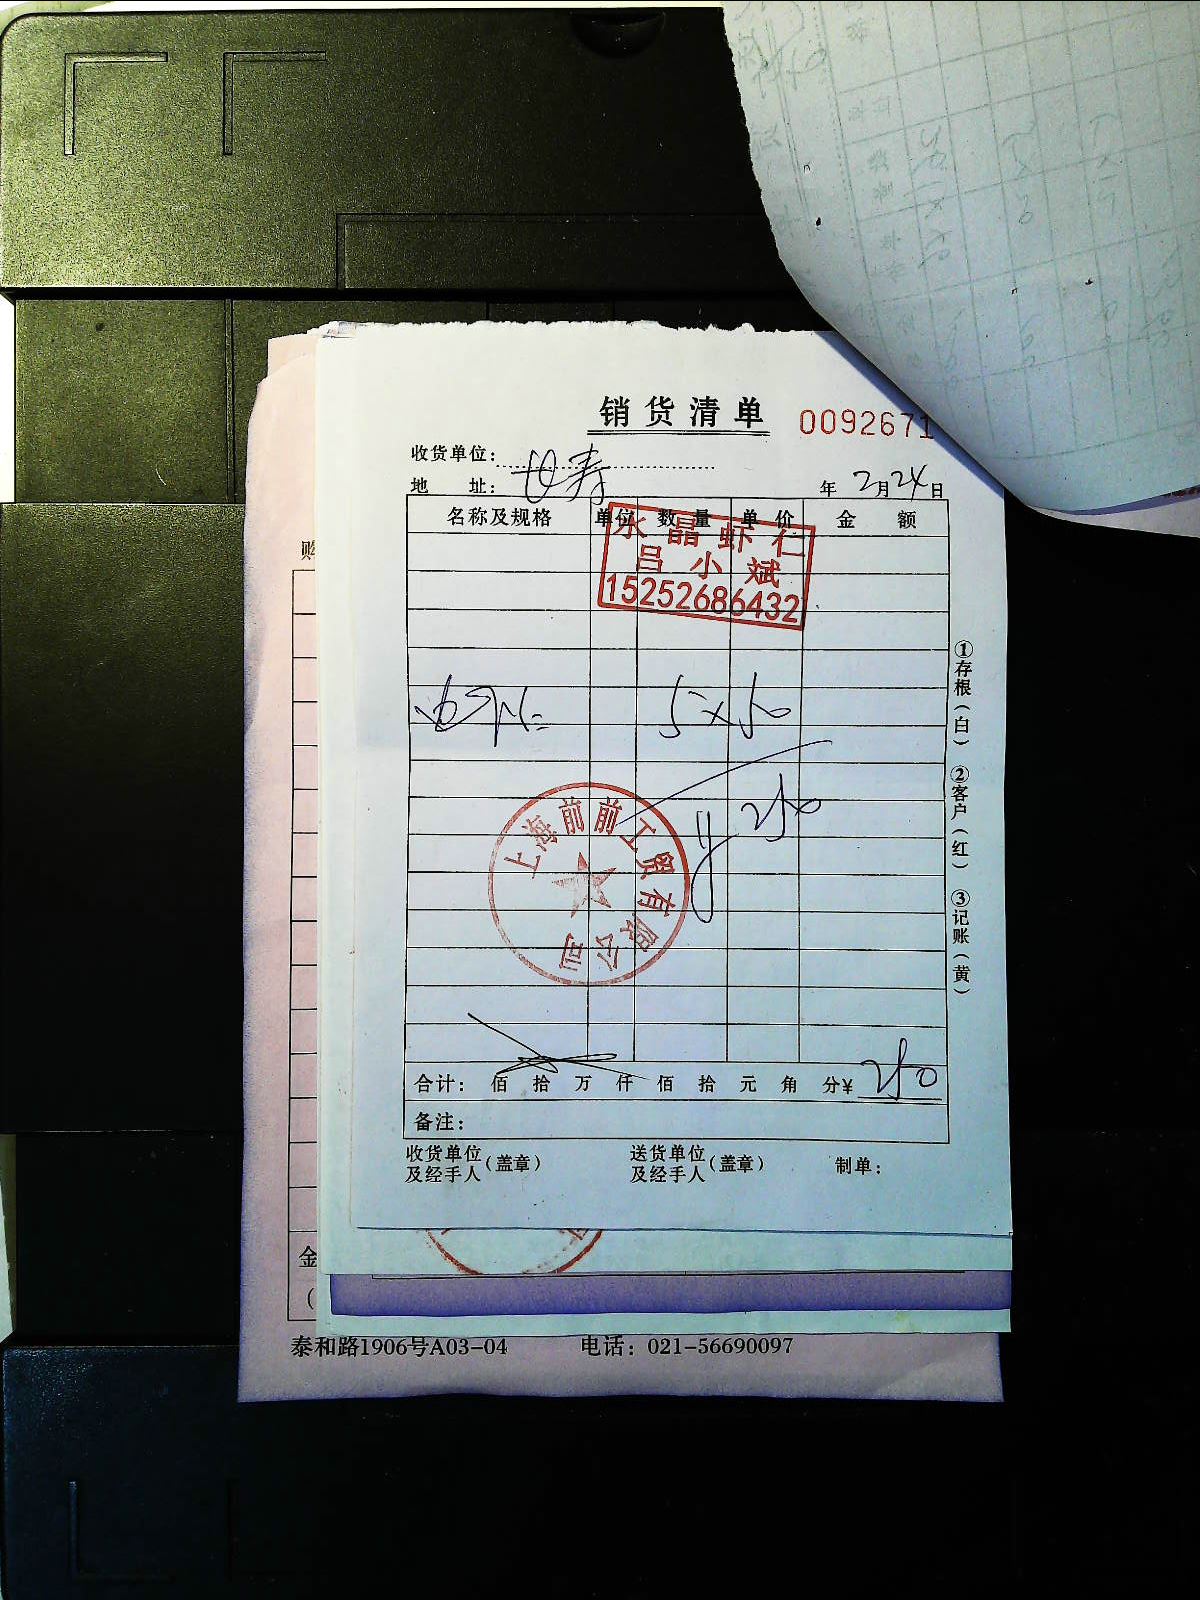 销货清单 0092671
收货单位：
地 址： 世寿
年 2月24日
名称及规格 单位 数量 单价 金额
水晶虾仁
吕小斌
15252686432
5×50
250
上海前前工贸有限公司
合计： 佰 拾 万 仟 佰 拾 元 角 分¥ 250
备注：
收货单位
及经手人（盖章）
送货单位
及经手人（盖章）
制单：
①存根（白） ②客户（红） ③记账（黄）
购
金
（
泰和路1906号A03-04 电话：021-56690097